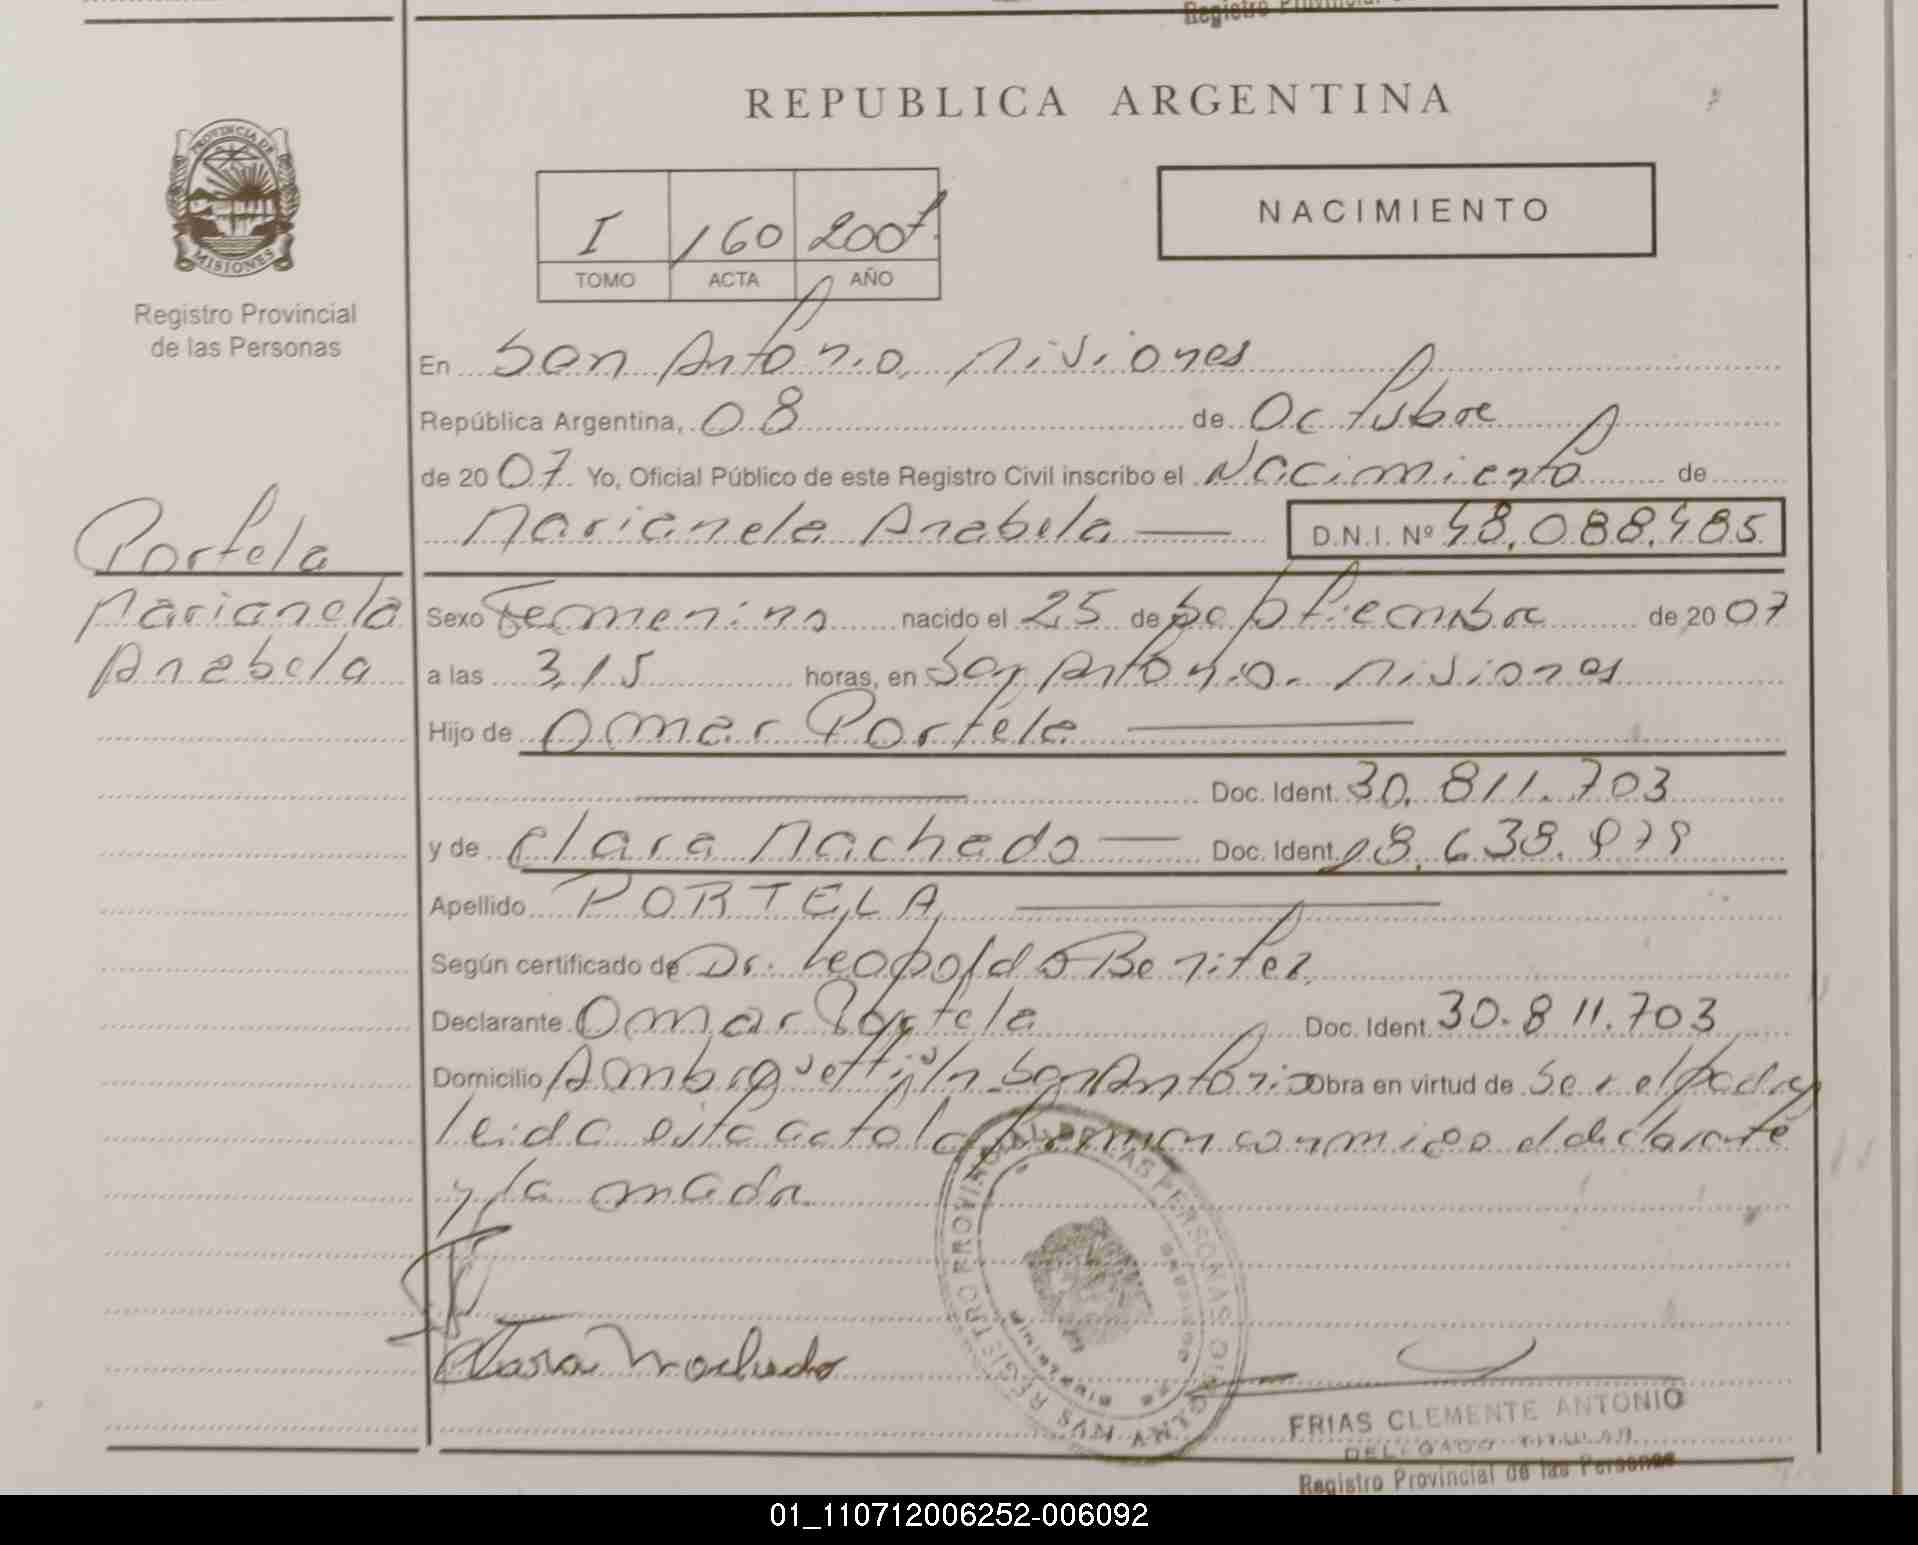 Registro Provincial
REPUBLICA ARGENTINA
PROVINCIA DE
MISIONES
Registro Provincial
de las Personas
I 160 2007
TOMO ACTA AÑO
NACIMIENTO
En San Antonio, Misiones
República Argentina, 08 de Octubre
de 2007 Yo, Oficial Público de este Registro Civil inscribo el Nacimiento de
Marianela Anabela D.N.I. Nº 48.088.485
Portela
Marianela
Anabela
Sexo Femenino nacido el 25 de Septiembre de 2007
a las 3,15 horas, en San Antonio. Misiones
Hijo de Omar Portela
Doc. Ident. 30.811.703
y de Clara Machado Doc. Ident. 18.638.979
Apellido PORTELA
Según certificado de Dr. Leopoldo Benitez
Declarante Omar Portela Doc. Ident. 30.811.703
Domicilio S/n San Antonio Obra en virtud de Ser el padre
leida esta acta la firman conmigo el declarante
y la madre
Clara Machado
REGISTRO PROVINCIAL DE LAS PERSONAS
FRIAS CLEMENTE ANTONIO
DELEGADO TITULAR
Registro Provincial de las Personas
01_110712006252-006092